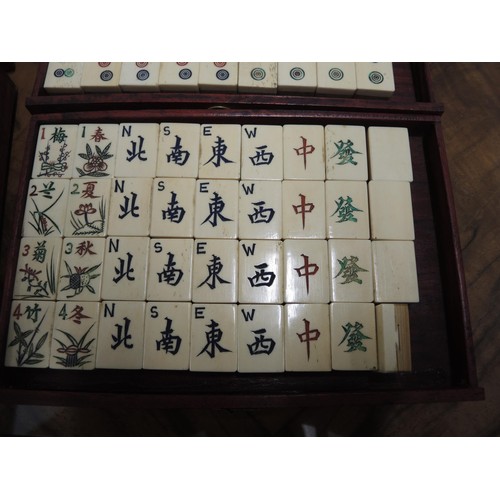 1 梅 1 春 N 北 S 南 E 東 W 西 中 發
2 兰 2 夏 N 北 S 南 E 東 W 西 中 發
3 菊 3 秋 N 北 S 南 E 東 W 西 中 發
4 竹 4 冬 N 北 S 南 E 東 W 西 中 發